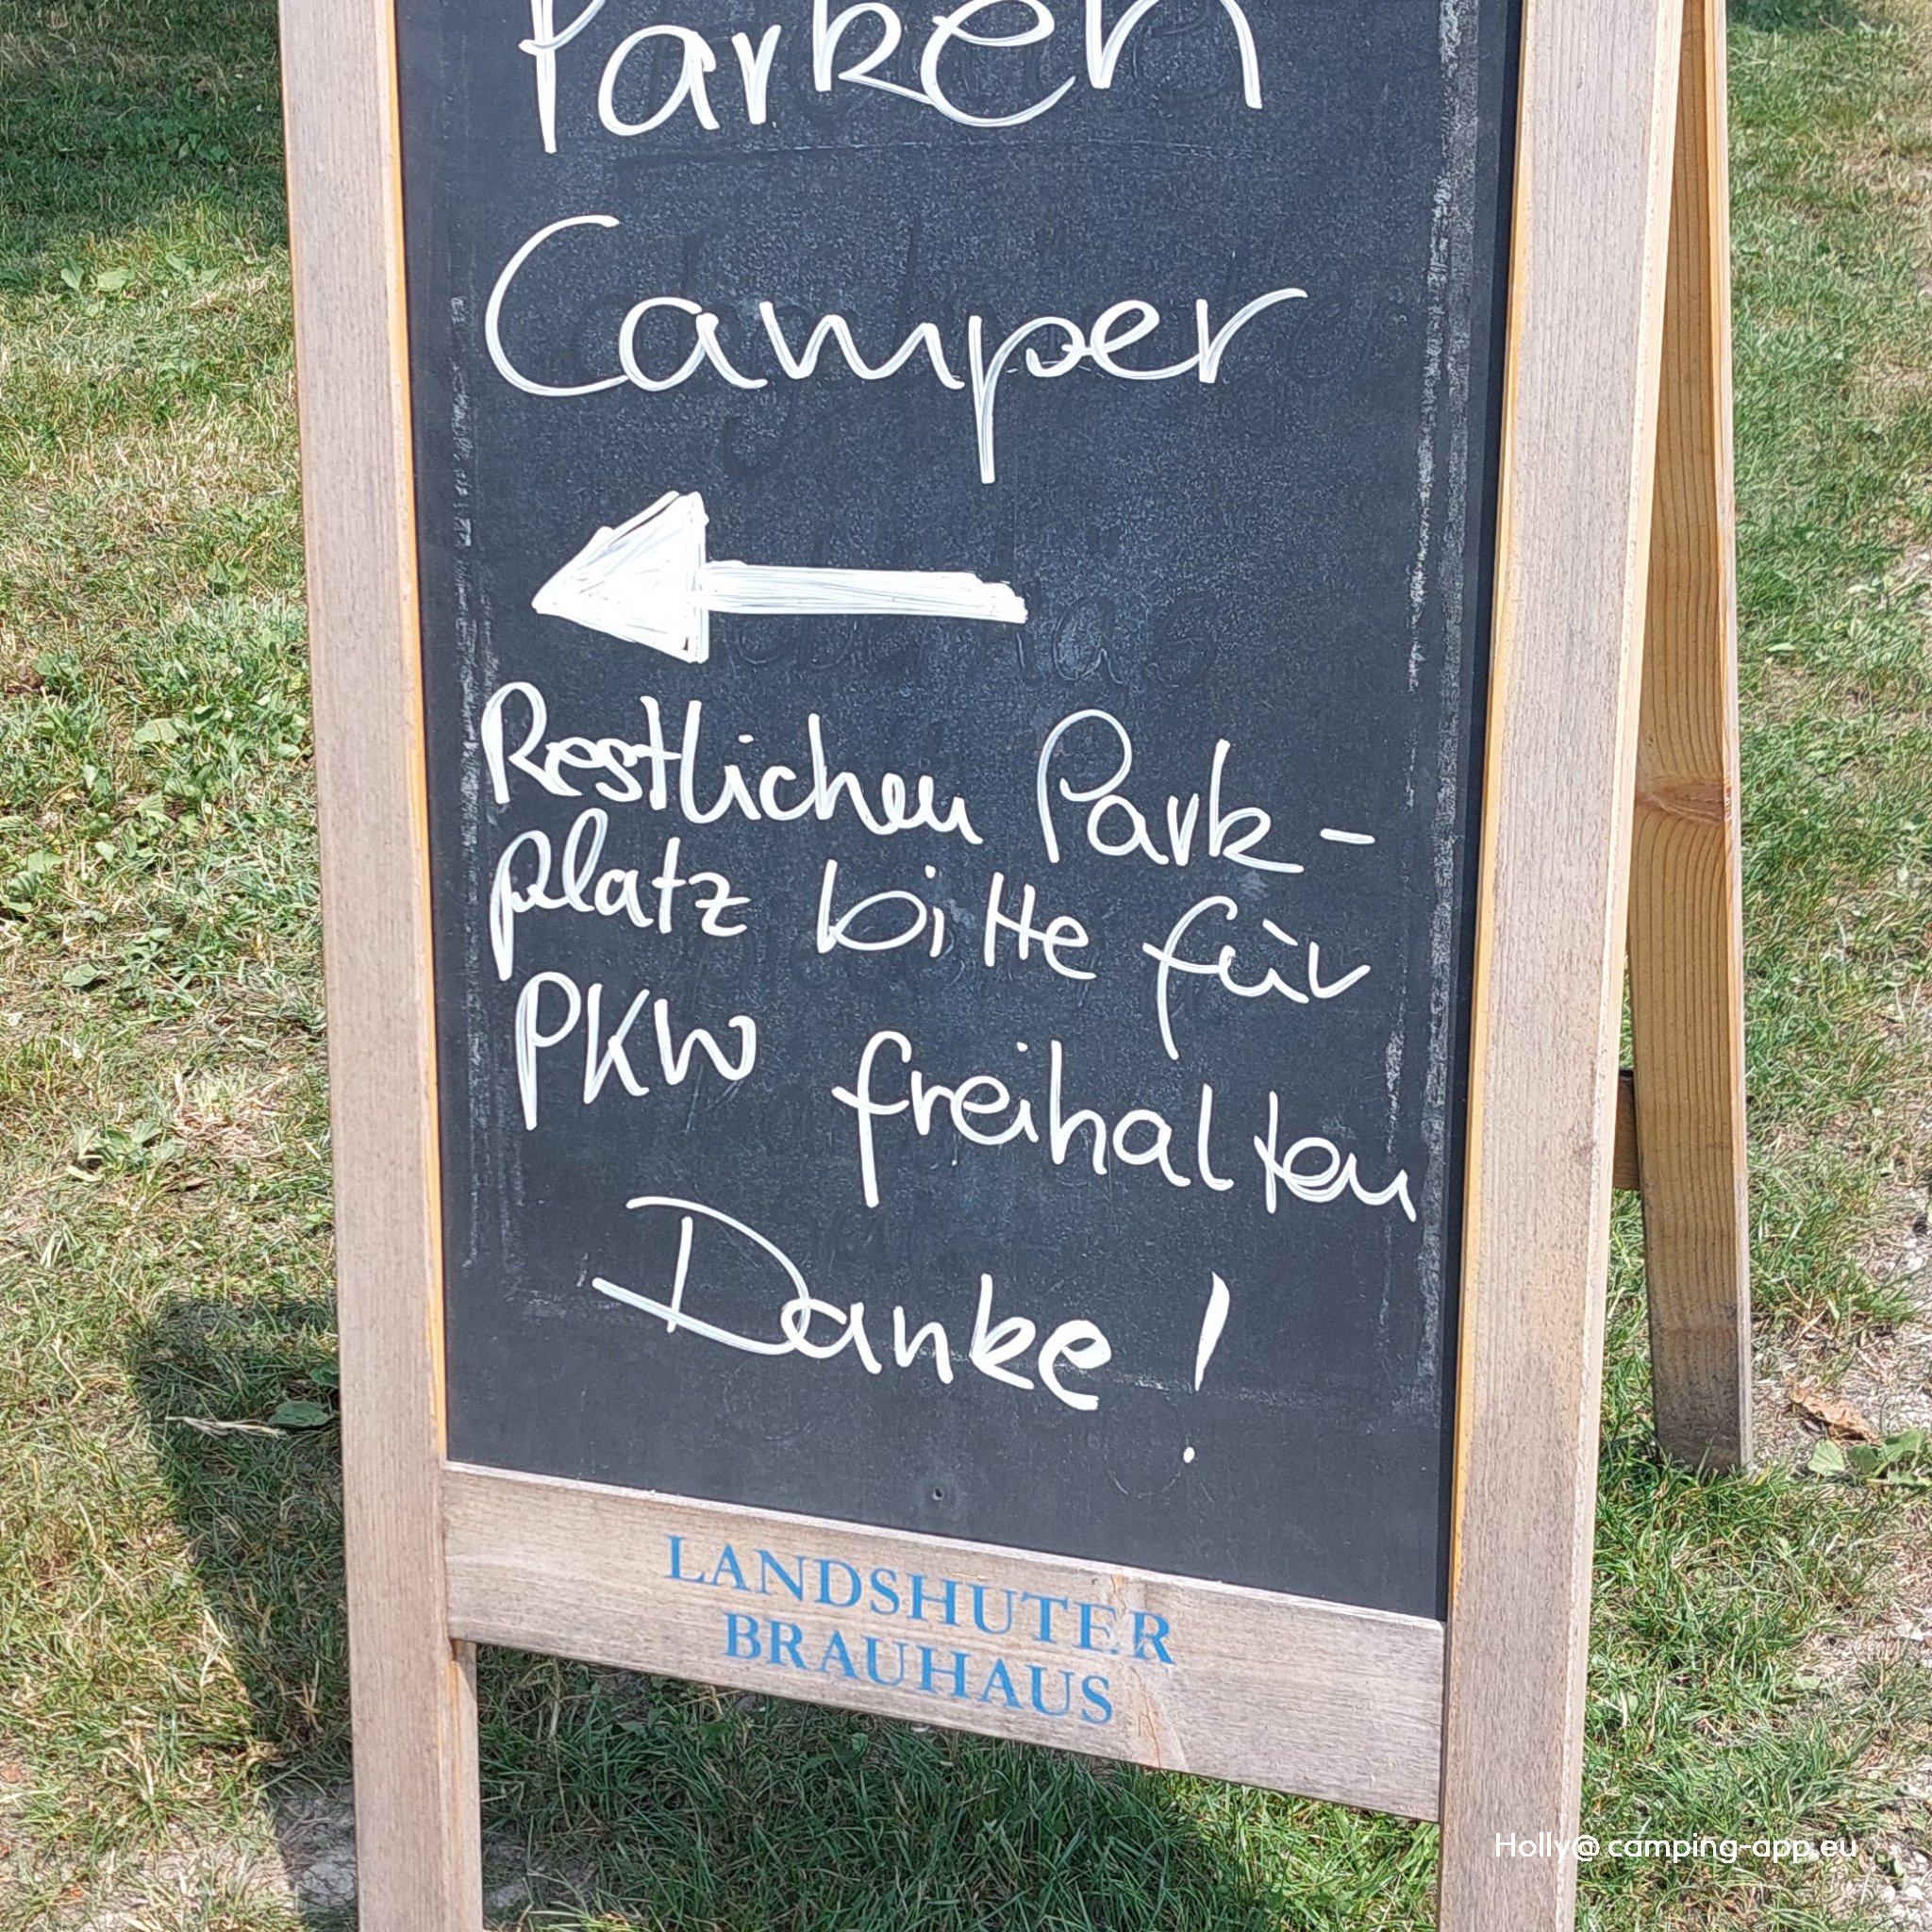 Parken
Camper
Restlichen Park-
platz bitte für
PKW freihalten
Danke!
LANDSHUTER
BRAUHAUS
Holly@camping-app.eu